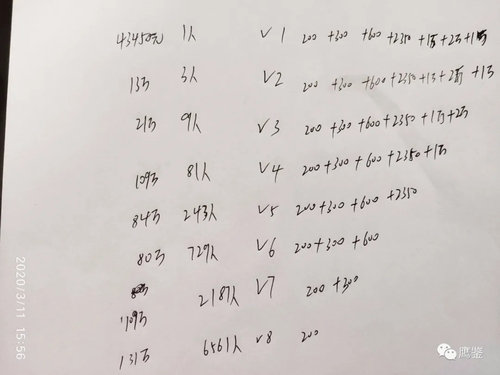 43450元 1人 V1 200 +300 +600 +2350 +1万+2万+1万
13万 3人 V2 200 +300 +600+2350+1万+2万 +1万
21万 9人 V3 200 +300 +600+2350+1万+2万
109万 81人 V4 200+300+600+2350+1万
84万 243人 V5 200+300+600 +2350
80万 729人 V6 200+300+600
2187人 V7 200 +300
109万
131万 6561人 V8 200
2020/3/11 15:56
鹰鉴